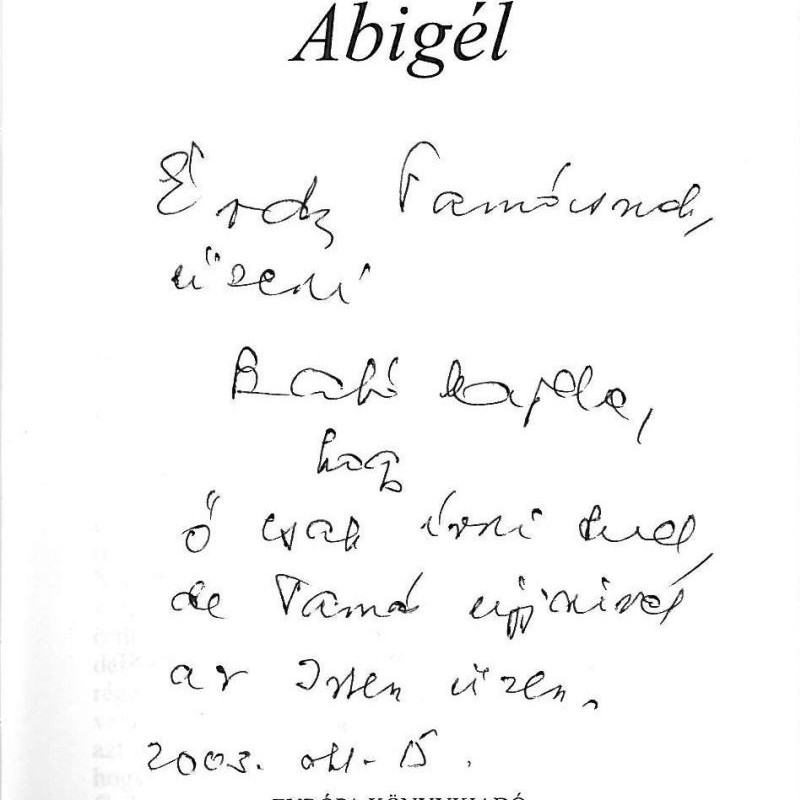 Abigél
Érdy Tamásnak,
üzeni
Szabó Magda,
hogy
ő csak írni tud,
de Tamás ujjaival
az Isten üzen.
2003. okt. 15.
EURÓPA KÖNYVKIADÓ